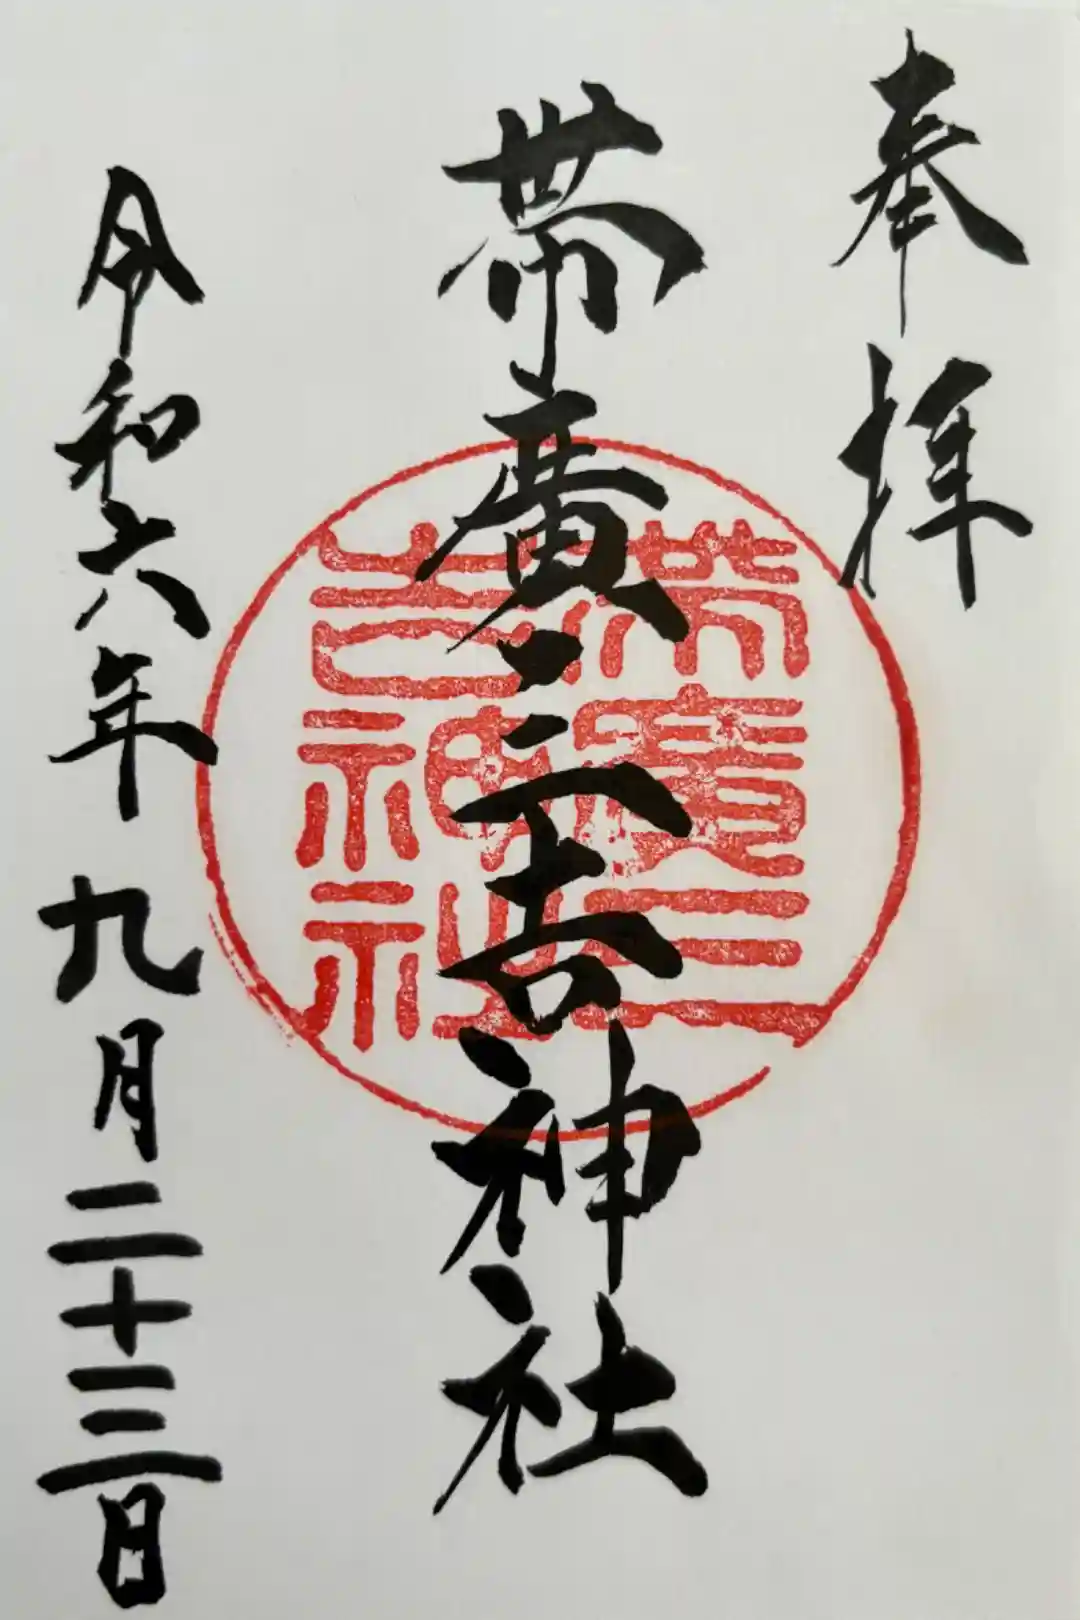 奉拝
帯廣三吉神社
帯廣三
吉神社
令和六年 九月二十三日